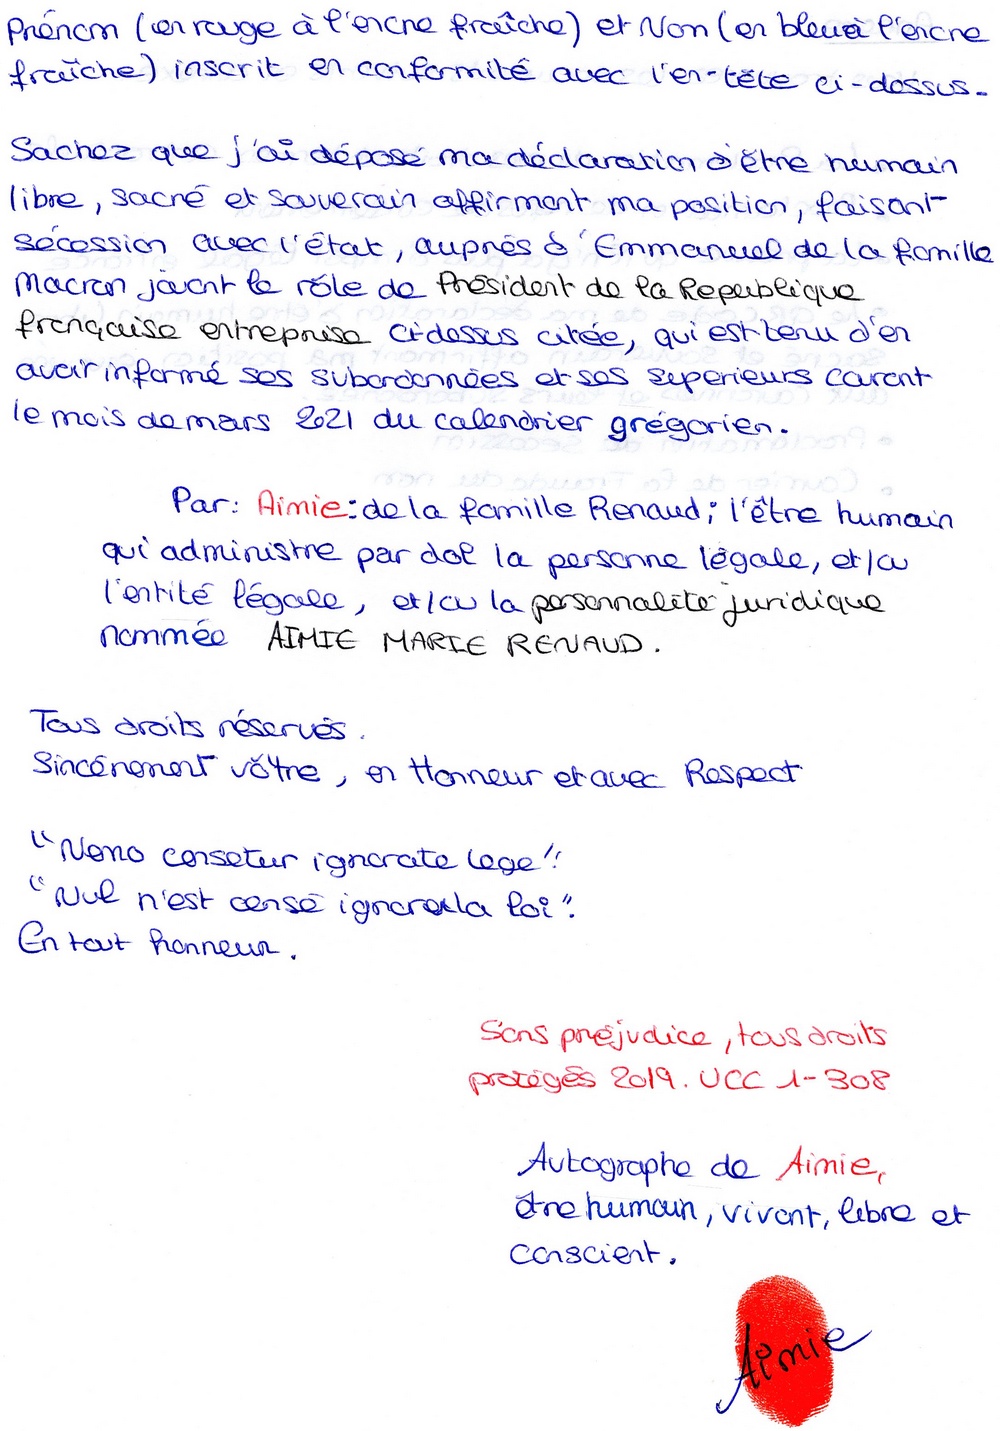 Prénom (en rouge à l'encre fraîche) et Nom (en bleu à l'encre
fraîche) inscrit en conformité avec l'en-tête ci-dessus.
Sachez que j'ai déposé ma déclaration d'être humain
libre, sacré et souverain affirmant ma position, faisant
sécession avec l'état, auprès d'Emmanuel de la famille
Macron jouant le rôle de Président de la République
française entreprise ci-dessus citée, qui est tenu d'en
avoir informé ses subordonnées et ses superieurs courant
le mois de mars 2021 du calendrier grégorien.
Par: Aimie: de la famille Renaud; l'être humain
qui administre par dol la personne légale, et/ou
l'entité légale, et/ou la personnalité juridique
nommée AIMIE MARIE RENAUD.
Tous droits réservés.
Sincèrement vôtre, en Honneur et avec Respect
"Nemo censetur ignorate lege":
"Nul n'est censé ignorer la loi".
En tout honneur.
Sans préjudice, tous droits
protégés 2019. UCC 1-308
Autographe de Aimie,
être humain, vivant, libre et
conscient.
Aimie